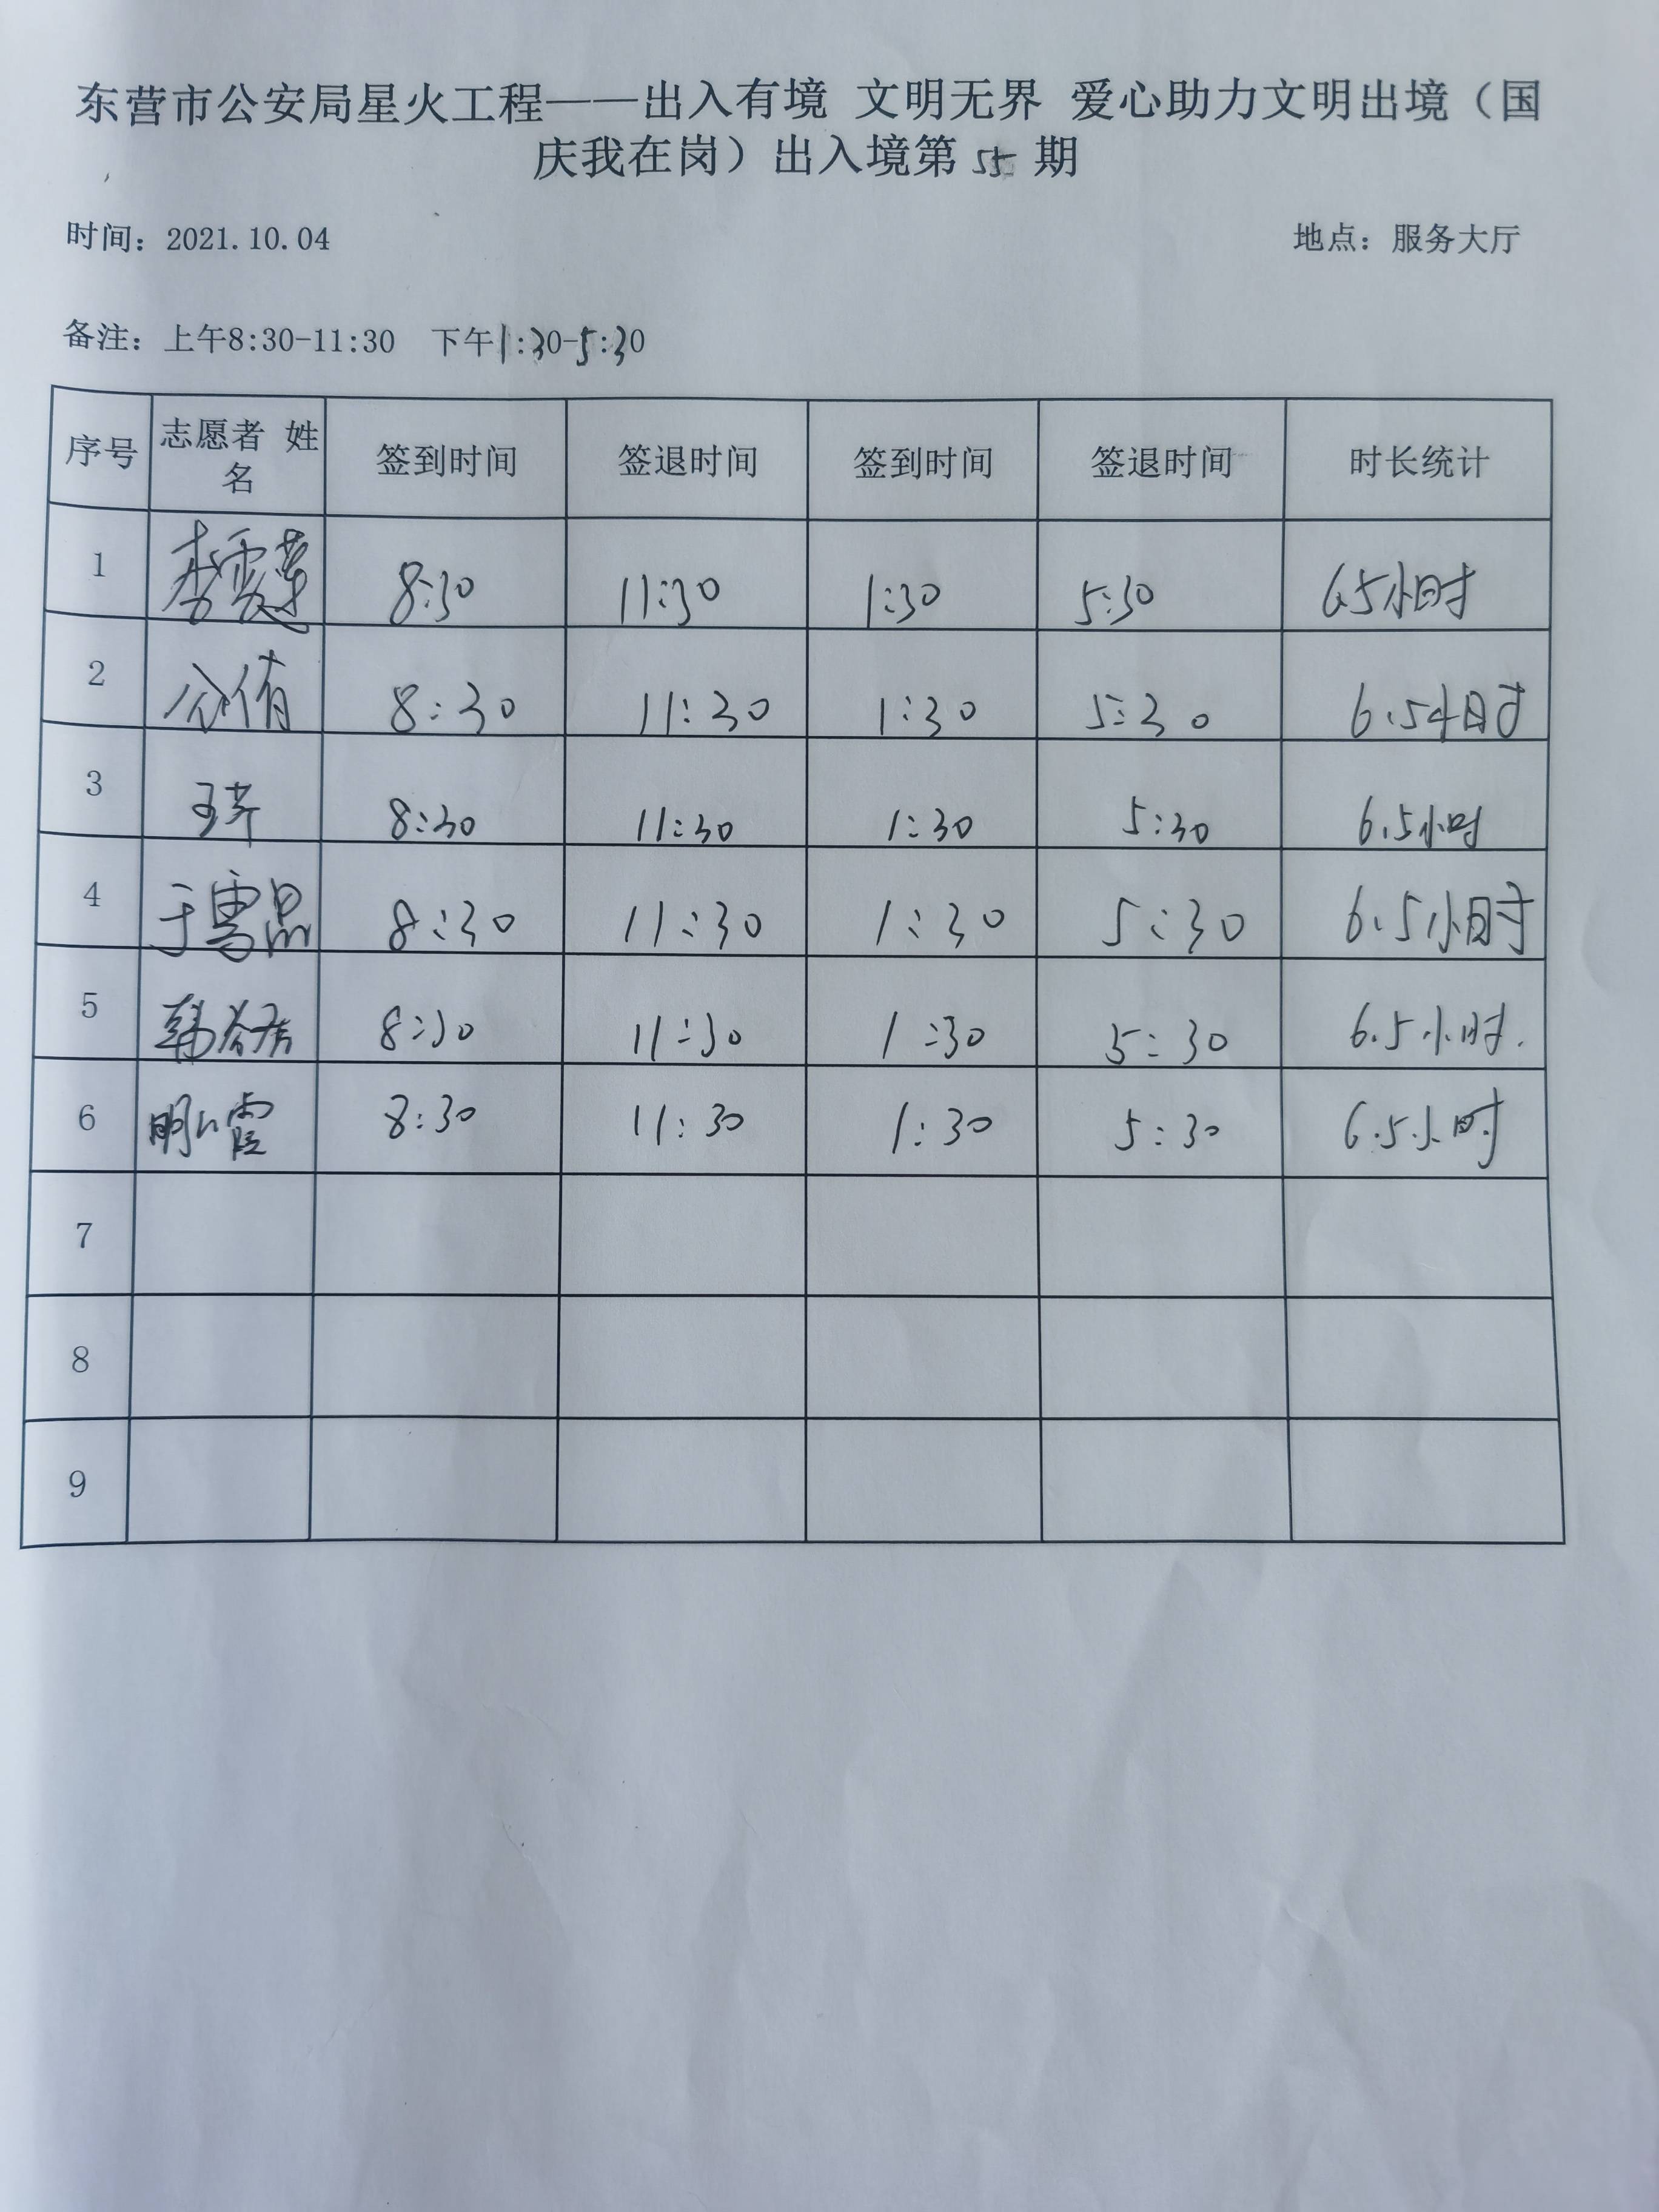 东营市公安局星火工程——出入有境 文明无界 爱心助力文明出境（国
庆我在岗）出入境第 55 期
时间：2021.10.04 地点：服务大厅
备注：上午8:30-11:30 下午1:30-5:30
序号 志愿者 姓名 签到时间 签退时间 签到时间 签退时间 时长统计
1 李雪莲 8:30 11:30 1:30 5:30 6.5小时
2 8:30 11:30 1:30 5:30 6.5小时
3 王芹 8:30 11:30 1:30 5:30 6.5小时
4 于雪晶 8:30 11:30 1:30 5:30 6.5小时
5 韩 8:30 11:30 1:30 5:30 6.5小时.
6 明小霞 8:30 11:30 1:30 5:30 6.5小时
7
8
9